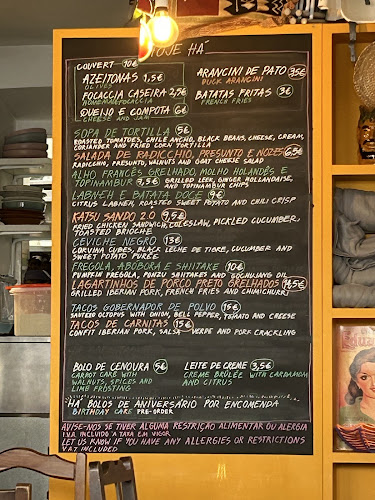 HOJE HÁ
COUVERT 10€
AZEITONAS 1,5€
OLIVES
FOCACCIA CASEIRA 2,5€
HOMEMADE FOCACCIA
QUEIJO E COMPOTA 6€
CHEESE AND JAM
ARANCINI DE PATO 3,5€
DUCK ARANCINI
BATATAS FRITAS 3€
FRENCH FRIES
SOPA DE TORTILLA 5€
ROASTED TOMATOES, CHILE ANCHO, BLACK BEANS, CHEESE, CREAM,
CORIANDER AND FRIED CORN TORTILLA
SALADA DE RADICCHIO, PRESUNTO E NOZES 6,5€
RADICCHIO, PRESUNTO, WALNUTS AND GOAT CHEESE SALAD
ALHO FRANCÊS GRELHADO, MOLHO HOLANDÊS E
TOPINAMBUR 9,5€ GRILLED LEEK, GINGER HOLLANDAISE,
AND TOPINAMBUR CHIPS
LABNEH E BATATA DOCE 9€
CITRUS LABNEH, ROASTED SWEET POTATO AND CHILI CRISP
KATSU SANDO 2.0 9,5€
FRIED CHICKEN SANDWICH, COLESLAW, PICKLED CUCUMBER,
TOASTED BRIOCHE
CEVICHE NEGRO 13€
CORVINA CUBES, BLACK LECHE DE TIGRE, CUCUMBER AND
SWEET POTATO PURÉE
FREGOLA, ABÓBORA E SHIITAKE 10€
PUMPKIN FREGOLA, PONZU SHIITAKES AND GOCHUJANG OIL
LAGARTINHOS DE PORCO PRETO GRELHADOS 14,5€
GRILLED IBERIAN PORK, FRENCH FRIES AND CHIMICHURRI
TACOS GOBERNADOR DE POLVO 15€
SAUTÉED OCTOPUS WITH ONION, BELL PEPPER, TOMATO AND CHEESE
TACOS DE CARNITAS 15€
CONFIT IBERIAN PORK, SALSA VERDE AND PORK CRACKLING
BOLO DE CENOURA 5€
CARROT CAKE WITH
WALNUTS, SPICES AND
LIMB FROSTING
LEITE DE CREME 3,5€
CREME BRÛLÉE WITH CARDAMOM
AND CITRUS
HÁ BOLOS DE ANIVERSÁRIO POR ENCOMENDA
BIRTHDAY CAKE PRE-ORDER
AVISE-NOS SE TIVER ALGUMA RESTRIÇÃO ALIMENTAR OU ALERGIA
I.V.A INCLUÍDO À TAXA EM VIGOR
LET US KNOW IF YOU HAVE ANY ALLERGIES OR RESTRICTIONS
VAT INCLUDED